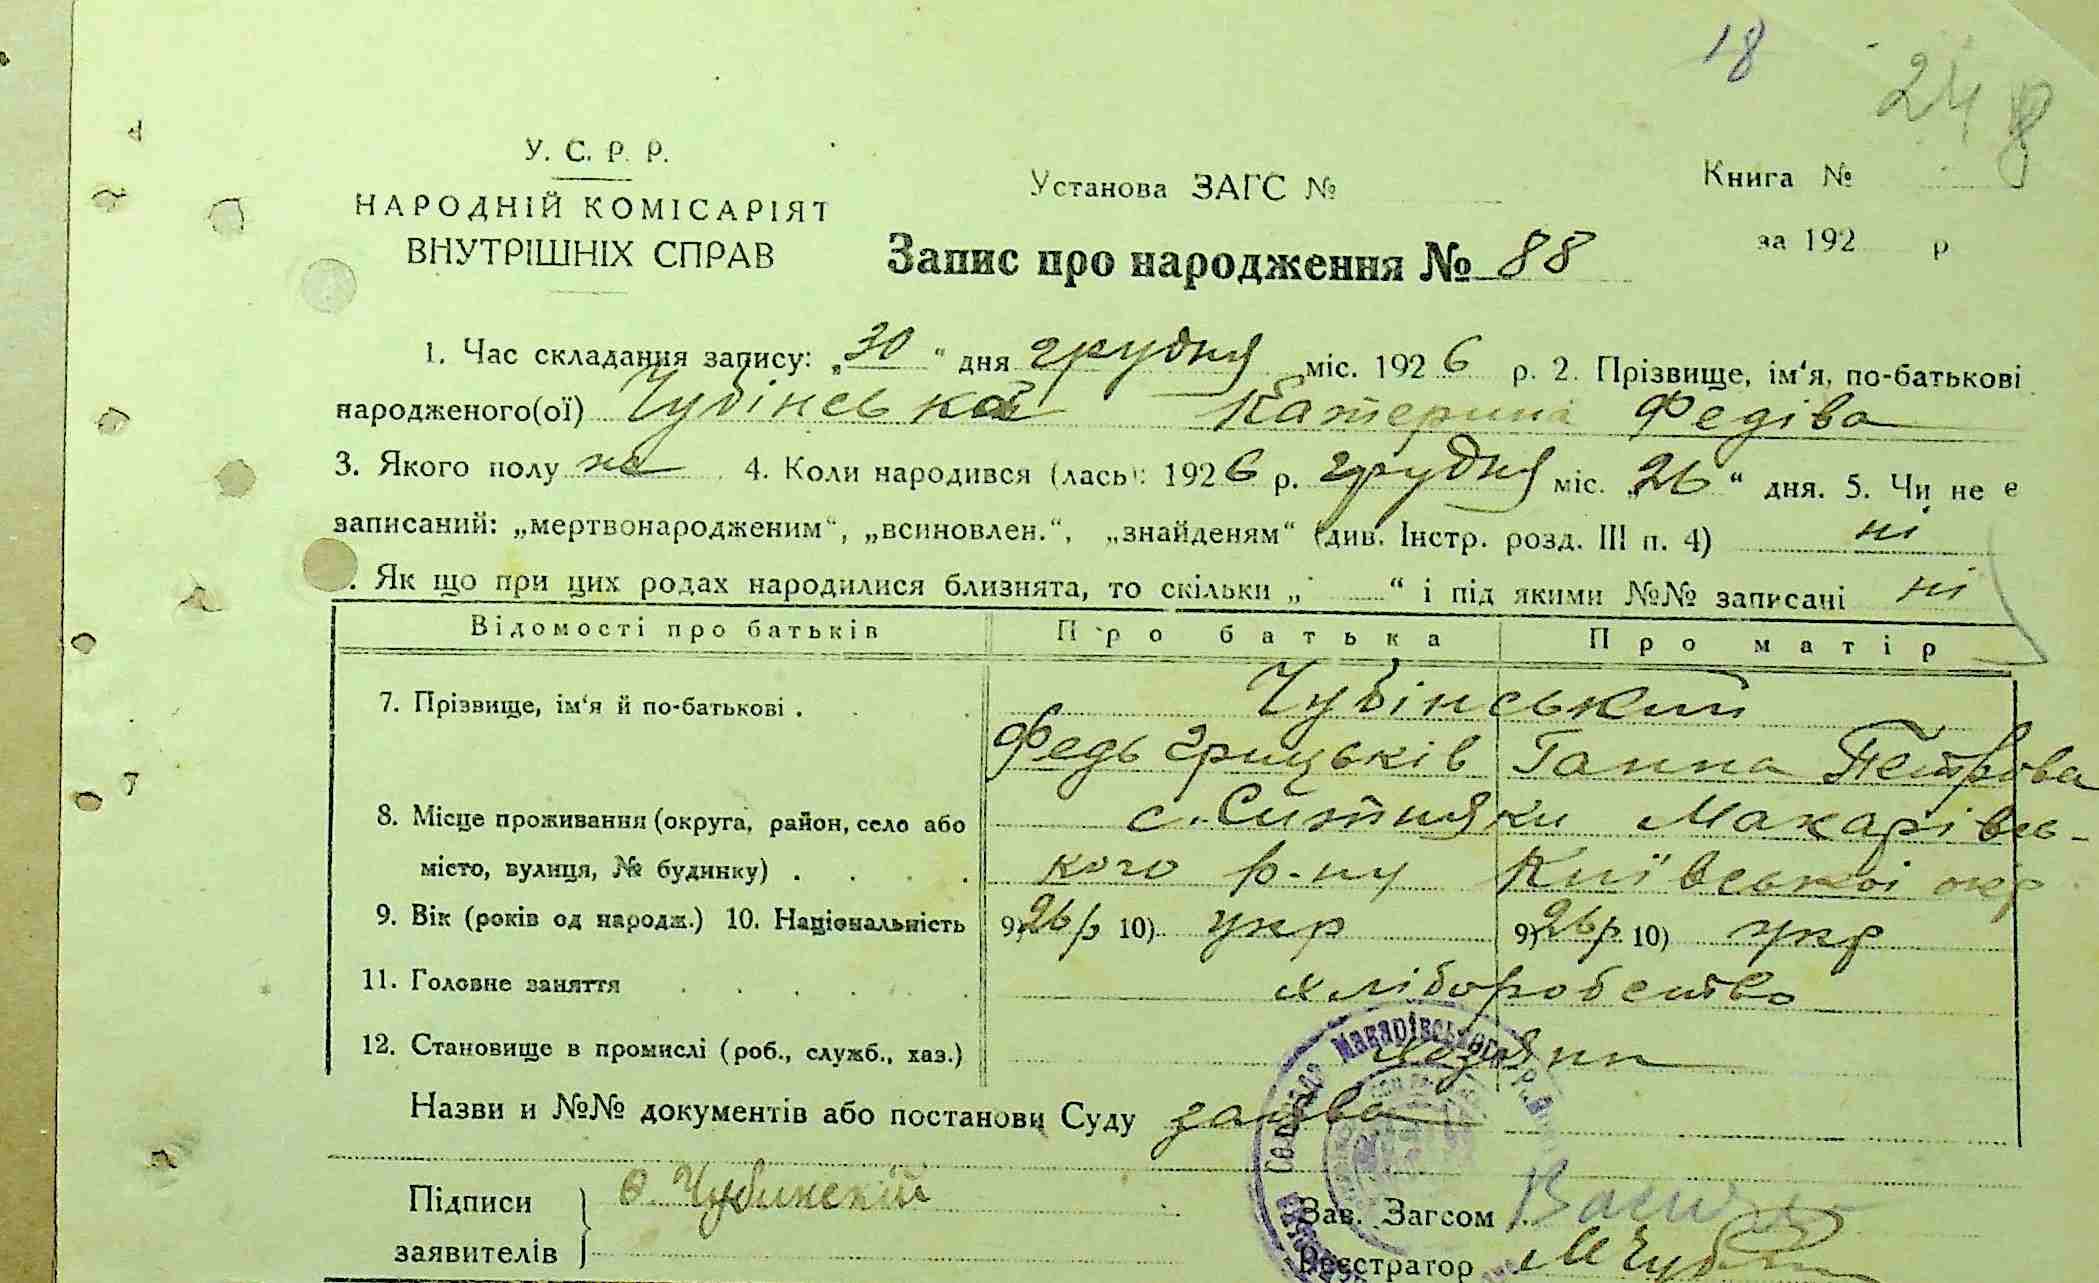 18
248
У. С. Р. Р.
НАРОДНІЙ КОМІСАРІЯТ
ВНУТРІШНІХ СПРАВ
Установа ЗАГС №
Книга №
за 192 р
Запис про народження № 88
1. Час складання запису: „30" дня грудня міс. 1926 р. 2. Прізвище, ім'я, по-батькові
народженого(ої) Чубінська Катерина Федіва
3. Якого полу жс 4. Коли народився (лась): 1926 р. грудня міс. „26" дня. 5. Чи не є
записаний: „мертвонародженим", „всиновлен.", „знайденям" (див. Інстр. розд. III п. 4) ні
. Як що при цих родах народилися близнята, то скільки „ " і під якими №№ записані ні
Відомості про батьків Про батька Про матір
7. Прізвище, ім'я й по-батькові . Чубінський
Федь Грицьків Ганна Петрова
8. Місце проживання (округа, район, село або с. Ситняки Макарівсь-
місто, вулиця, № будинку) . кого р-ну Київської окр
9. Вік (років од народж.) 10. Національність 9) 26 р 10) укр 9) 26 р 10) укр
11. Головне заняття хліборобство
12. Становище в промислі (роб., служб., хаз.) хозяин
Назви и №№ документів або постанови Суду заява
Макарівського
Підписи
заявителів
Ѳ. Чубинскій
Зав. Загсом
Реєстратор МЧуб